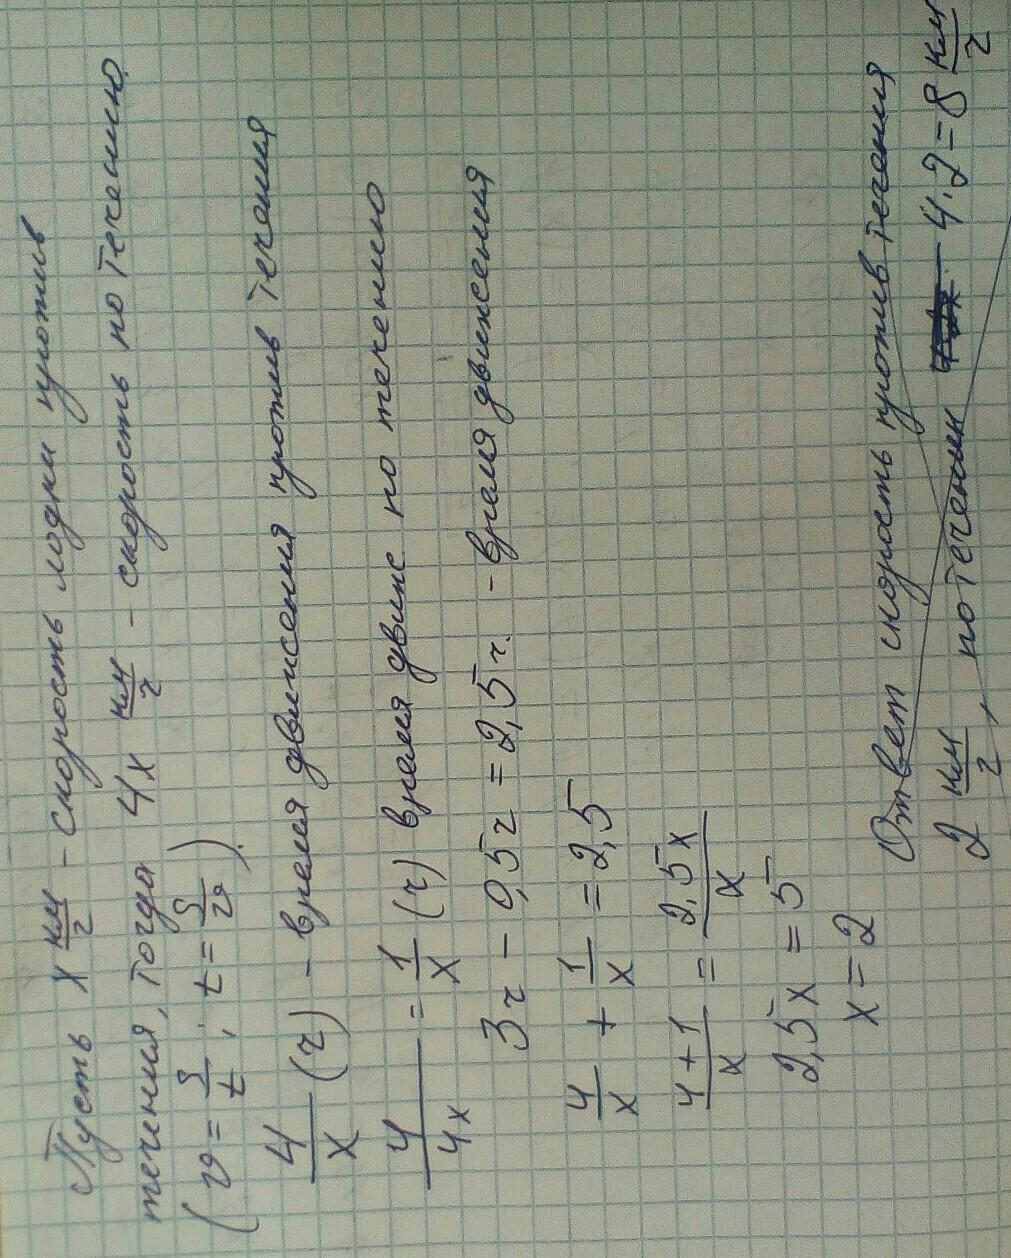 Пусть x км/ч - скорость лодки против
течения, тогда 4x км/ч - скорость по течению
(v = S/t ; t = S/v).
4/x (ч) - время движения против течения
4/4x = 1/x (ч) время движ по течению
3ч - 0,5ч = 2,5ч. - время движения
4/x + 1/x = 2,5
4+1/x = 2,5x/x
2,5x = 5
x = 2
Ответ скорость против течения
2 км/ч, по течении 4·2=8 км/ч